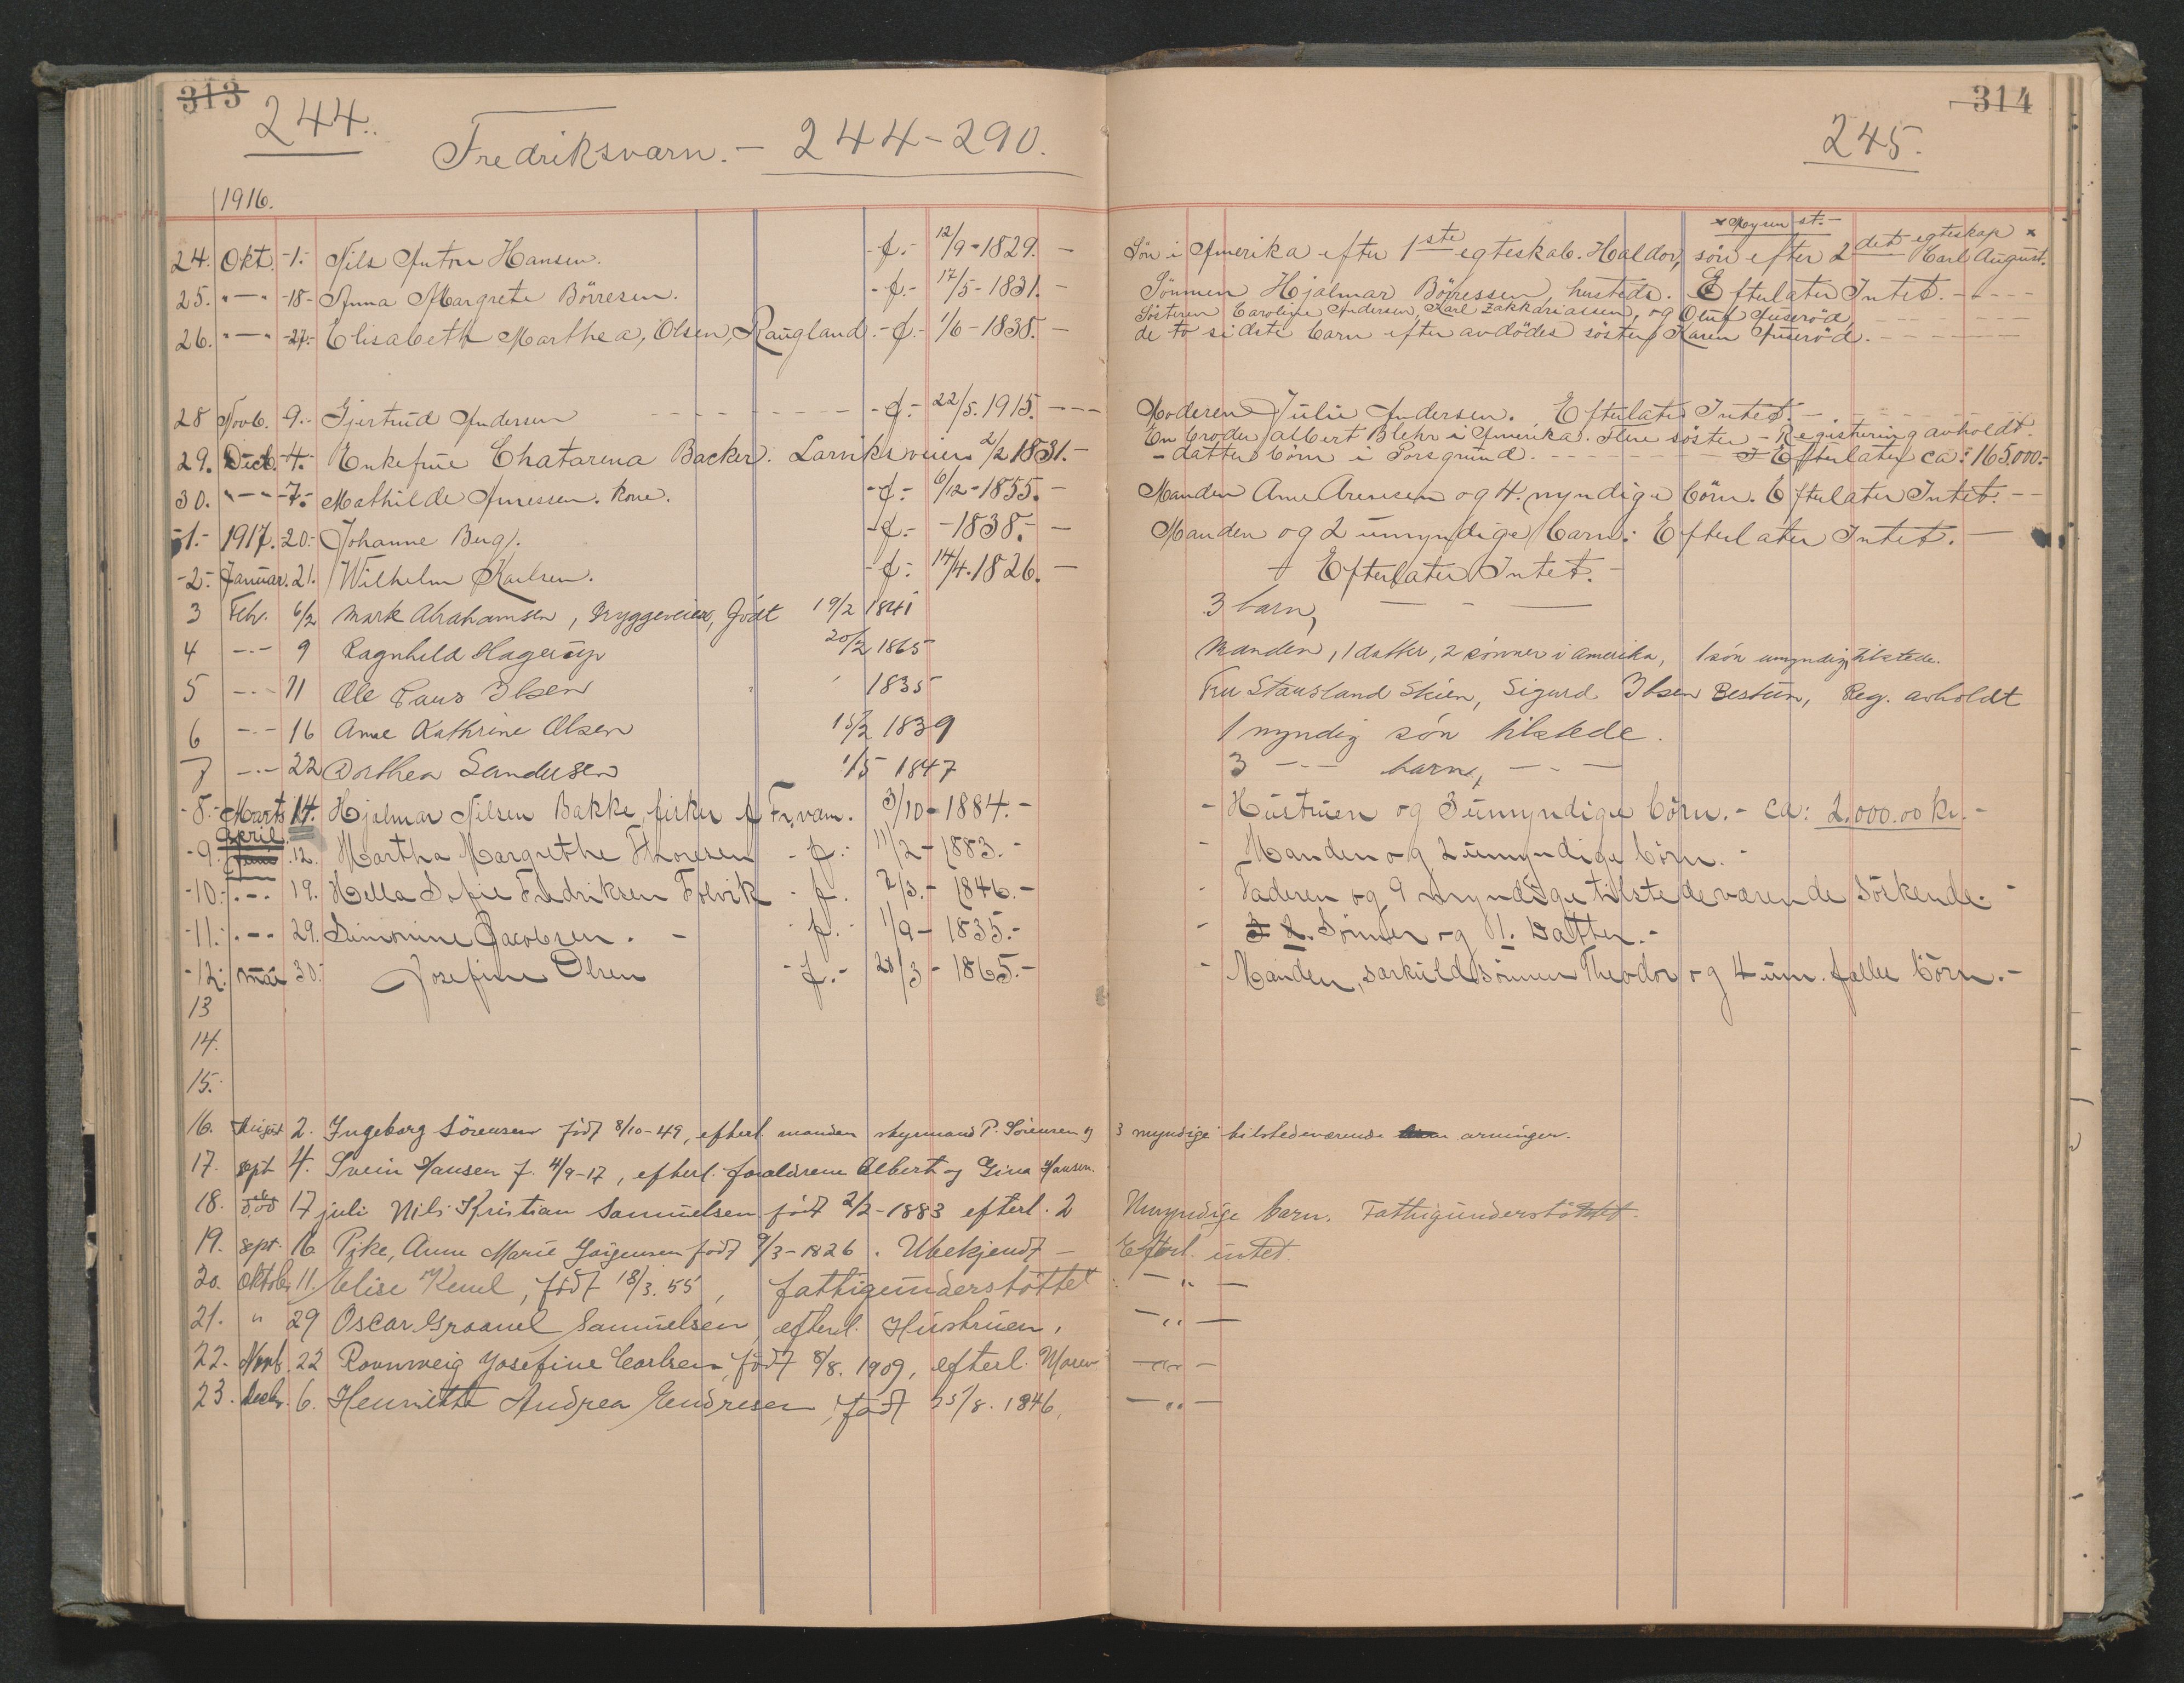 313
314
244.
Fredriksværn. - 244-290.
245.
1916.
24. Okt. -1.- Nils Anton Hansen. - f. - 12/9-1829. - Sön i Amerika efter 1ste egteskab. Haldor, sön efter 2det egteskap × Karl August.
× Mysen st. -
25. -"- -18- Anna Margrete Börresen. - f. - 17/5-1831. - Sönnen Hjalmar Börressen husteds. Efterlater Intet. - - -
Söstren Caroline Andersen, Karl Zakkariassen, og Oluf Auseröd
26. -"- -27.- Elisabeth Marthea, Olsen, Raugland. - f. - 1/6-1838. - de to sidste barn efter avdödes söster Karen Auseröd. - - -
28 Novb. 9.- Gjertrud Andersen - - - - f. - 22/5.1915. - - - Moderen Julie Andersen. Efterlater Intet. -
En broder Albert Blehr i Amerika. Flere söster - Registrering avholdt.
29. Decb. -4.- Enkefrue Chatarina Backer. Larviksveien 2/2 1831. - - datters börn i Porsgrund. - - - Efterlater ca: 165,000.-
30. -"- -7.- Mathilde Arnessen. Kone. - f. - 6/12-1855. - Manden Arne Arnesen og 4. myndige börn. Efterlater Intet. - -
-1.- 1917. -20.- Johanne Berg. - f. - -1838. - - Manden og 2 umyndige barn. Efterlater Intet. -
-2.- Januar. 21. Wilhelm Karlsen. - f. - 14/4.1826. - - Efterlater Intet. -
3 Febr. 6/2 Mark Abrahamsen, Bryggeveien, født 19/2 1841 3 barn, - - -
4 -"- 9 Ragnhild Hagerup 20/2 1865 Manden, 1 datter, 2 sønner i Amerika, 1 søn umyndig, tilstede.
5 -"- 11 Ole Paus Ibsen " ' 1835 Fru Stausland Skien, Sigurd Ibsen Bestun, Reg. avholdt
6 -"- 16 Anne Kathrine Olsen 15/2 1839 1 myndig søn tilstede.
7 -"- 22 Dorthea Sandersen 1/5 1847 3 -"- barn, - - -
-8.- Marts 14. Hjalmar Nilsen Bakke, fisker f Fr.værn. 3/10-1884.- - Hustruen og 3 umyndige börn. - ca: 2.000.00 Kr. -
April
-9. Juni 12. Martha Margrethe Thoresen - f. - 11/2-1883. - - Manden og 2 umyndige börn. -
-10.- -"- 19. Hella Sofie Fredriksen Folvik - f. 2/3.-1846.- - Faderen og 9 myndige tilstedeværende söskende. -
-11.- -"- 29. Simonine Jacobsen. - - f. - 1/9-1835.- - 3 2. Sönner og 1. Datter. -
-12.- mai 30.- Josefine Olsen - f. - 20/3-1865.- - Manden, særkuldsönnen Theodor og 4 um. fælles börn. -
13
14.
15.
16. August 2. Ingeborg Sörensen född 8/10-49, efterl. manden styrmand P. Sörensen og 3 myndige tilstedeværende arvinger.
17. sept 4. Svein Hansen f. 4/9-17, efterl. forældrene Albert og Gina Hansen.
18. 17 juli Nils Kristian Samuelsen född 2/2-1883 efterl. 2 Umyndige barn. Fattigunderstöttet.
19. sept. 16 Pike, Anne Marie Jörgensen född 9/3-1826. Ubekjendt - Efterl. intet.
20. Oktober 11. Elise Keml, född 18/3.55, fattigunderstöttet - " -
21. " 29 Oscar Graanel Samuelsen, efterl. Hustruen, - " -
22. Novb. 22 Rønnveig Josefine Carlsen, född 8/8.1909, efterl. Moren - " -
23. Decbr. 6. Henriette Andrea Endresen, född 25/8.1846, - " -